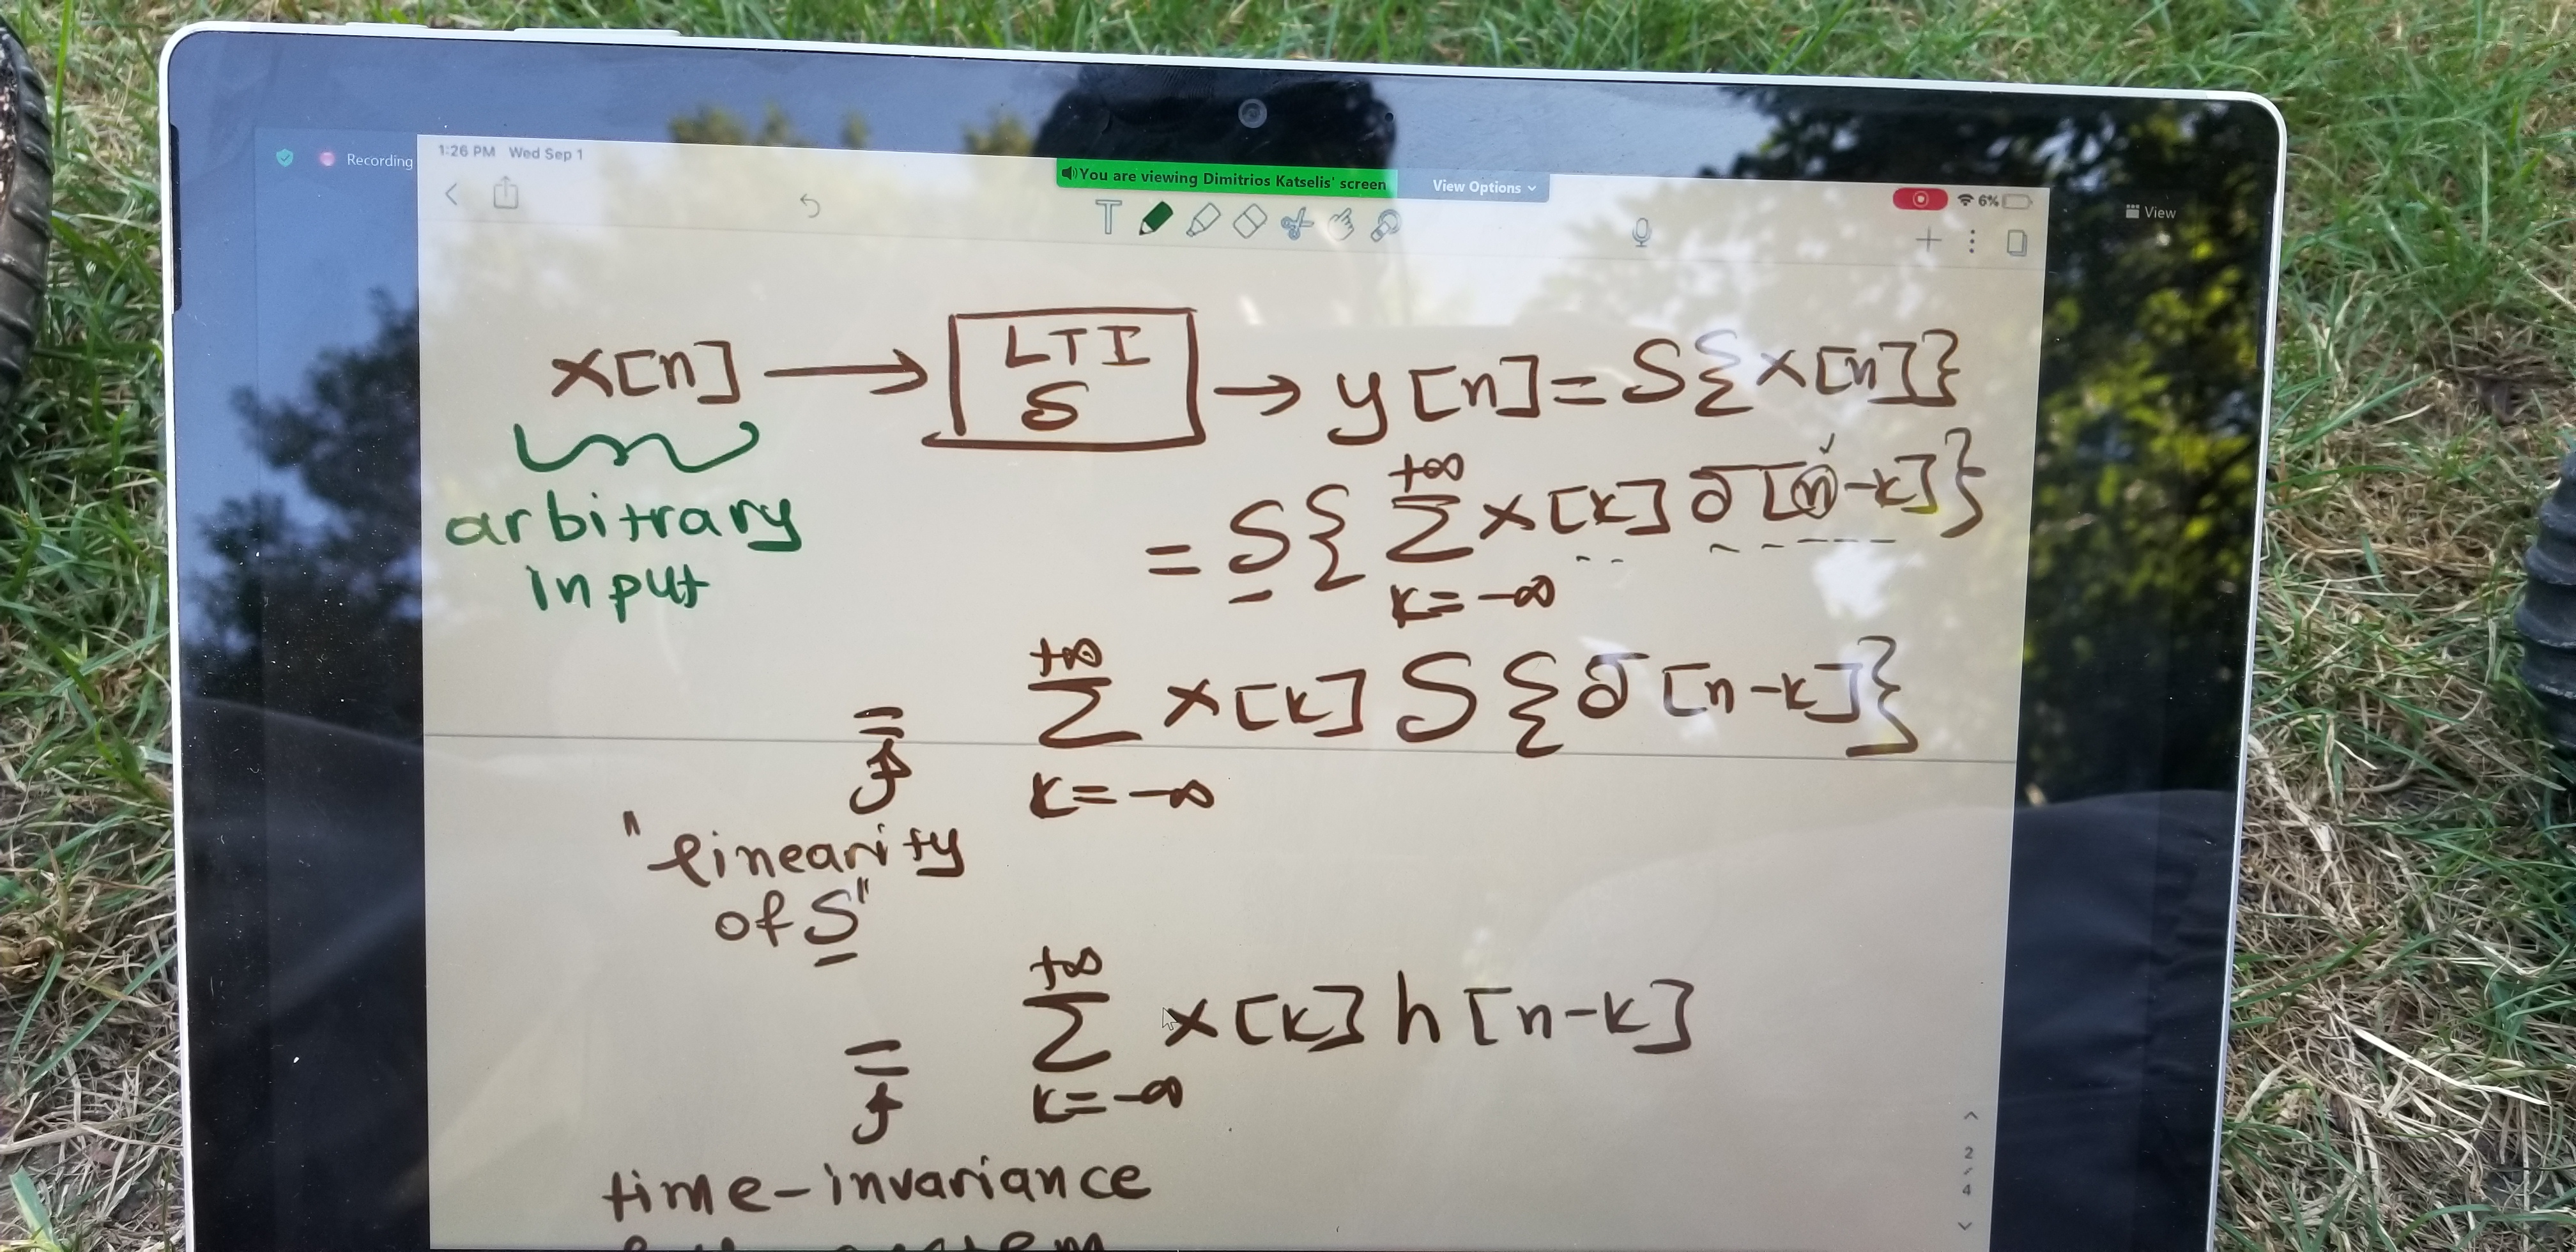 Recording
1:26 PM Wed Sep 1
You are viewing Dimitrios Katselis' screen
View Options
6%
View
T
x[n] → LTI S → y[n] = S{x[n]}
arbitrary
input
= S{ +∞ Σ k=-∞ x[k] δ[n-k]}
= +∞ Σ k=-∞ x[k] S{δ[n-k]}
"linearity
of S"
= +∞ Σ k=-∞ x[k] h[n-k]
time-invariance
2
4